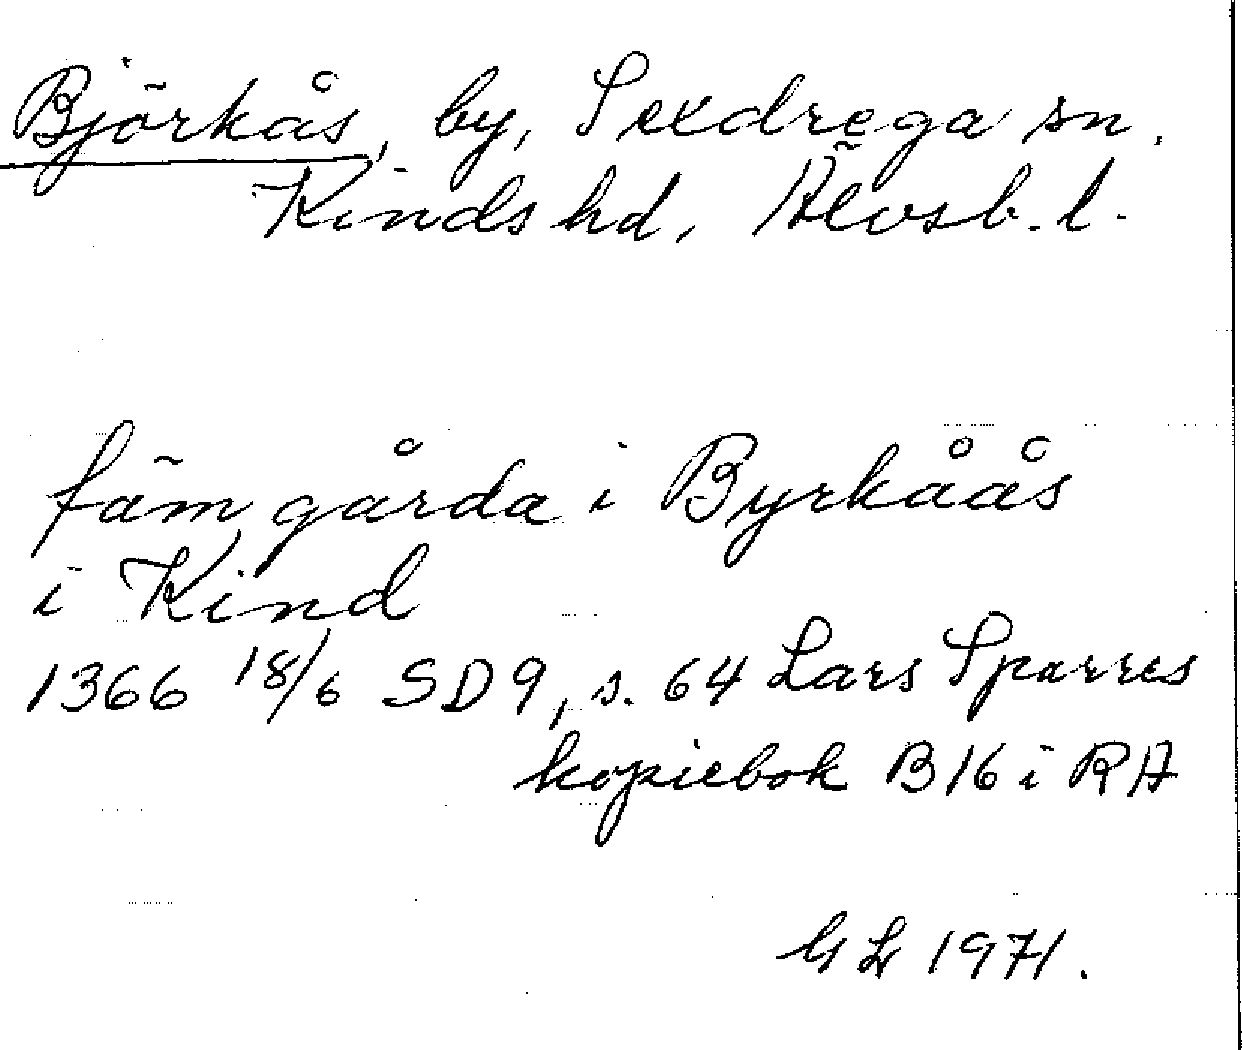 Björkås, by, Sexdrega sn.
Kinds hd, Älvsb. l.
fäm gårda i Byrkåås
i Kind
1366 18/6 SD9, s. 64 Lars Sparres
kopiebok B16 i RA
GL 1971.